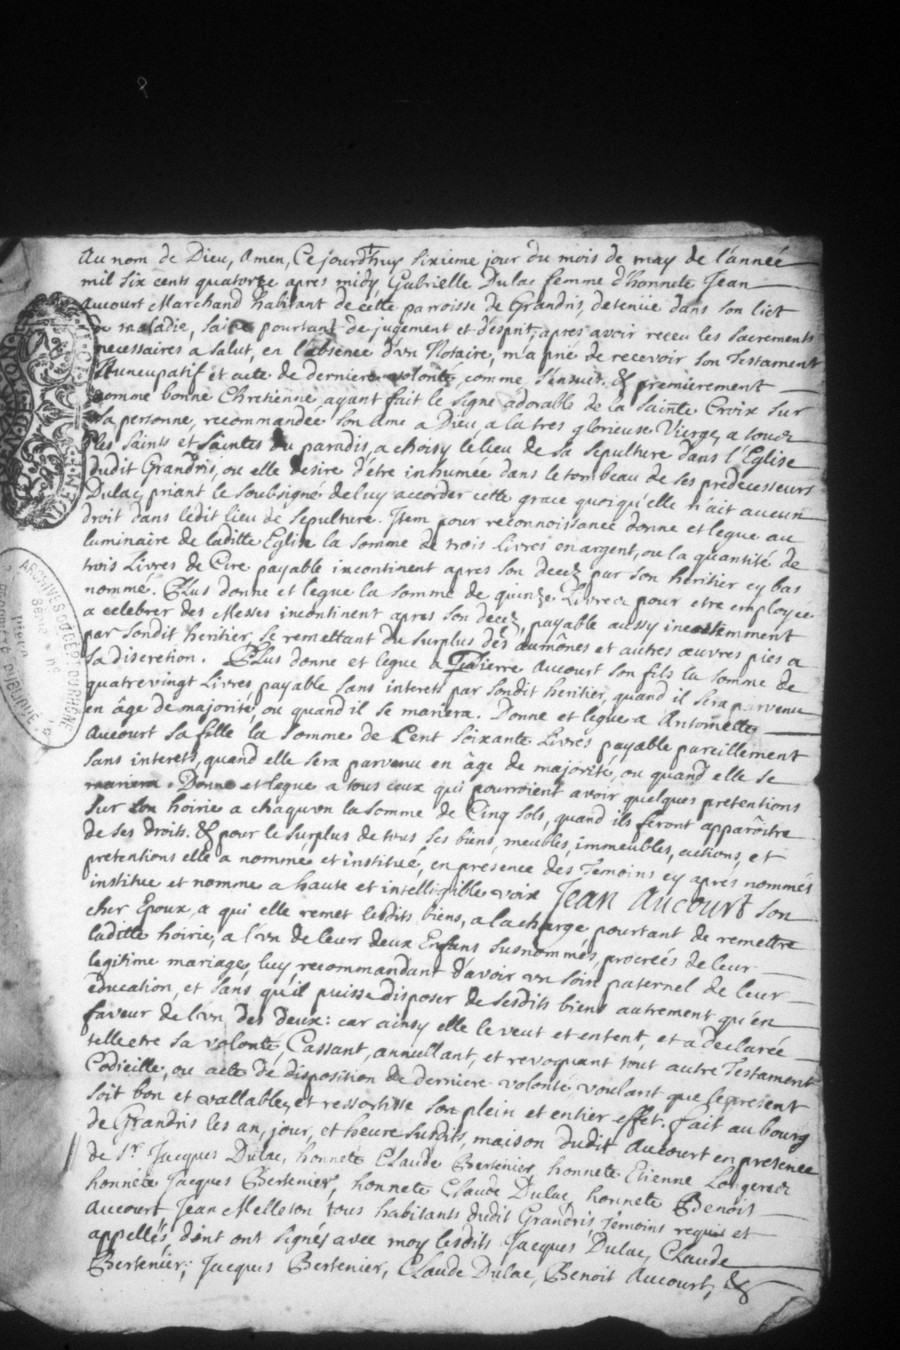 Au nom de Dieu, Amen, Ce jourd'huy sixiéme jour du mois de may de l'année
mil six cents quatorze apres midy Gabrielle Dulac femme d'honnete Jean
Aucourt Marchand habitant de cette parroisse de Grandris, detenüe dans son lict
de maladie, saine pourtant de jugement et d'esprit, apres avoir receu les sacrements
necessaires a salut, en l'absence d'vn Notaire, m'a prié de recevoir son Testament
Nuncupatif et acte de derniere volonté, comme s'ensuit. & premierement
comme bonne Chretienne ayant fait le signe adorable de la sainte Croix sur
sa personne, recommandée son ame a Dieu, a la tres glorieuse Vierge, a tous
les saints et saintes du paradis, a choisy le lieu de sa sepulture dans l'Eglise
dudit Grandris, ou elle desire d'être inhumée dans le tombeau de ses predecesseurs
Dulac, priant le soubsigné de luy accorder cette grace quoiqu'elle n'ait aucun
droit dans ledit lieu de sepulture. Item pour reconnoissance donne et legue au
luminaire de laditte Eglise la somme de trois Livres en argent, ou la quantité de
trois Livres de Cire payable incontinent apres son decez par son heritier cy bas
nommé. Plus donne et legue la somme de quinze Livres pour etre employée
a celebrer des Messes incontinent apres son decez, payable aussy incestemment
par sondit heritier, se remettant du surplus des aumônes et autres œuvres pies a
sa discretion. Plus donne et legue a Pierre Aucourt son fils la somme de
quatrevingt Livres payable sans interets par sondit heritier, quand il sera parvenu
en âge de majorité, ou quand il se mariera. Donne et legue a Antoinette
Aucourt sa fille la somme de Cent soixante Livres payable pareillement
sans interets, quand elle sera parvenu en âge de majorité, ou quand elle se
mariera. Donne et legue a tous ceux qui pourroient avoir quelques pretentions
sur son hoirie a chaquvn la somme de Cinq sols, quand ils feront apparôitre
de ses droits. & pour le surplus de tous ses biens, meubles, immeubles, actions, et
pretentions elle a nommé et institué, en presence des Temoins cy aprés nommés
institue et nomme a haute et intelligible voix Jean Aucourt son
cher Epoux, a qui elle remet lesdits biens, a la charge pourtant de remettre
laditte hoirie, a l'vn de leurs deux Enfans susnommés, procreés de leur
legitime mariage, luy recommandant d'avoir vn soin paternel de leur
education, et sans qu'il puisse disposer de sesdits biens autrement qu'en
faveur de l'vn des deux: car ainsy elle le veut et entent, et a declarée
telle etre sa volonté, Cassant, annullant, et revoquant tout autre Testament
Codicille, ou acte de disposition de derniere volonté, voulant que le present
soit bon et vallable, et ressortisse son plein et entier effet. fait au bourg
de Grandris les an, jour, et heure susdits, maison dudit Aucourt en presence
de Sr. Jacques Dulac, honnete Claude Bertenier, honnete Etienne
honnete Jacques Bertenier, honnete Claude Dulac, honnete Benoit
Aucourt Jean Melleton tous habitants dudit Grandris, Temoins requis et
appellés, dont ont signés avec moy lesdits Jacques Dulac, Claude
Bertenier, Jacques Bertenier, Claude Dulac, Benoit Aucourt, &
ARCHIVES DU DEPT. DU RHÔNE